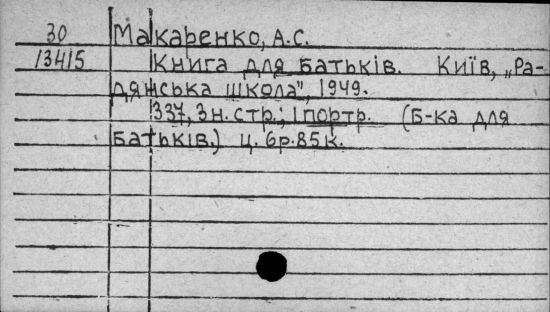 30 Макаренко, А.С.
13415 Книга для батьків. Київ, „Ра-
дянська школа", 1949.
337, 3 н. стр.; 1 портр. (Б-ка для
батьків.) ц. 6р.85к.